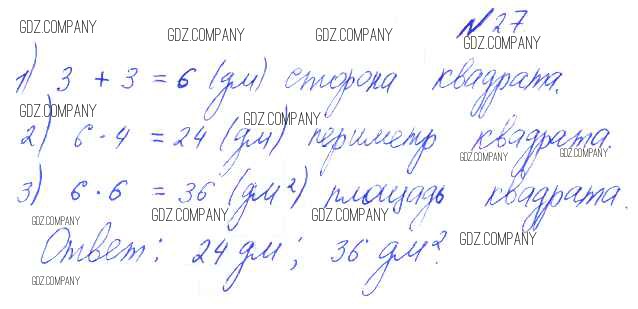 GDZ.COMPANY GDZ.COMPANY GDZ.COMPANY №27
GDZ.COMPANY
1) 3 + 3 = 6 (дм) сторона квадрата.
GDZ.COMPANY GDZ.COMPANY
2) 6 · 4 = 24 (дм) периметр квадрата.
GDZ.COMPANY GDZ.COMPANY
3) 6 · 6 = 36 (дм²) площадь квадрата.
GDZ.COMPANY GDZ.COMPANY GDZ.COMPANY
Ответ: 24 дм; 36 дм².
GDZ.COMPANY
GDZ.COMPANY